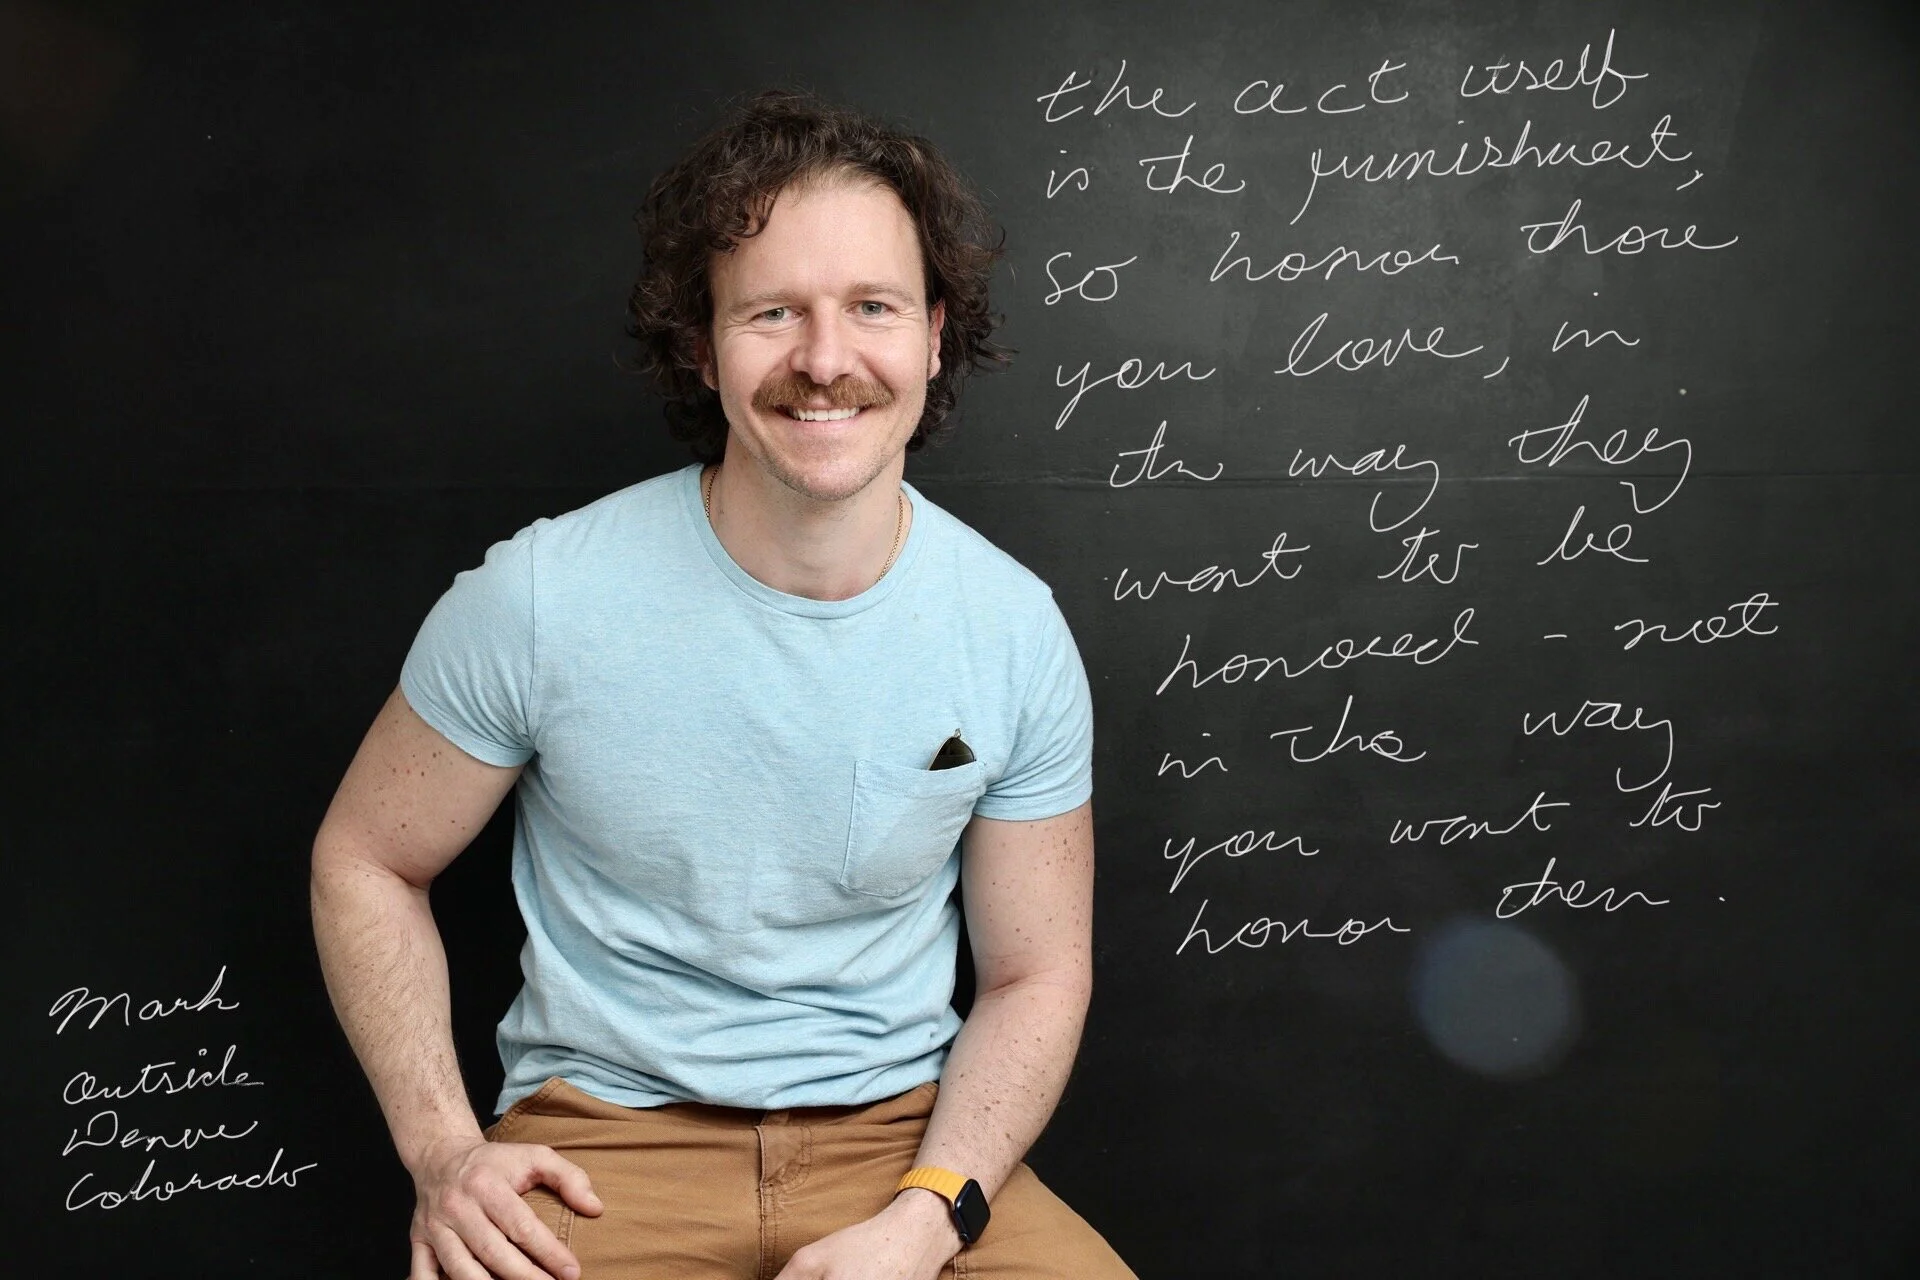 the act itself
is the punishment,
so honor those
you love, in
the way they
want to be
honored - not
in the way
you want to
honor them.
Mark
Outside
Denver
Colorado